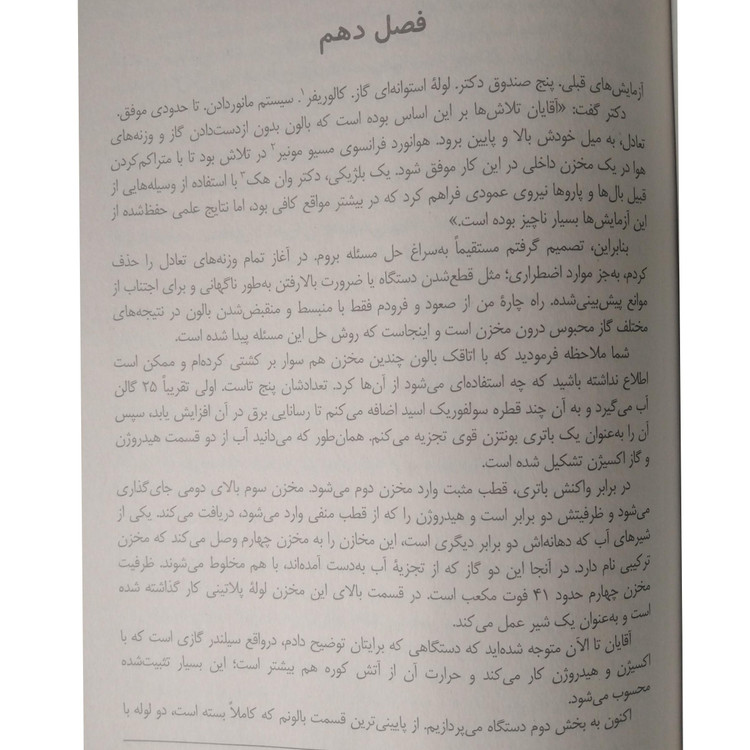 فصل دهم
آزمایش‌های قبلی. پنج صندوق دکتر. لولهٔ استوانه‌ای گاز. کالوریفر۱. سیستم مانوردادن. تا حدودی موفق.
دکتر گفت: «آقایان تلاش‌ها بر این اساس بوده است که بالون بدون ازدست‌دادن گاز و وزنه‌های
تعادل، به میل خودش بالا و پایین برود. هوانورد فرانسوی مسیو مونیر۲ در تلاش بود تا با متراکم‌کردن
هوا در یک مخزن داخلی در این کار موفق شود. یک بلژیکی، دکتر وان هک۳ با استفاده از وسیله‌هایی از
قبیل بال‌ها و پاروها نیروی عمودی فراهم کرد که در بیشتر مواقع کافی بود، اما نتایج علمی حفظ‌شده از
این آزمایش‌ها بسیار ناچیز بوده است.»
بنابراین، تصمیم گرفتم مستقیماً به‌سراغ حل مسئله بروم. در آغاز تمام وزنه‌های تعادل را حذف
کردم، به‌جز موارد اضطراری؛ مثل قطع‌شدن دستگاه یا ضرورت بالارفتن به‌طور ناگهانی و برای اجتناب از
موانع پیش‌بینی‌شده. راه چارهٔ من از صعود و فرودم فقط با منبسط و منقبض‌شدن بالون در نتیجه‌های
مختلف گاز محبوس درون مخزن است و اینجاست که روش حل این مسئله پیدا شده است.
شما ملاحظه فرمودید که با اتاقک بالون چندین مخزن هم سوار بر کشتی کرده‌ام و ممکن است
اطلاع نداشته باشید که چه استفاده‌ای می‌شود از آن‌ها کرد. تعدادشان پنج تاست. اولی تقریباً ۲۵ گالن
آب می‌گیرد و به آن چند قطره سولفوریک اسید اضافه می‌کنم تا رسانایی برق در آن افزایش یابد، سپس
آن را به‌عنوان یک باتری بونتزن قوی تجزیه می‌کنم. همان‌طور که می‌دانید آب از دو قسمت هیدروژن
و گاز اکسیژن تشکیل شده است.
در برابر واکنش باتری، قطب مثبت وارد مخزن دوم می‌شود. مخزن سوم بالای دومی جای‌گذاری
می‌شود و ظرفیتش دو برابر است و هیدروژن را که از قطب منفی وارد می‌شود، دریافت می‌کند. یکی از
شیرهای آب که دهانه‌اش دو برابر دیگری است، این مخازن را به مخزن چهارم وصل می‌کند که مخزن
ترکیبی نام دارد. در آنجا این دو گاز که از تجزیهٔ آب به‌دست آمده‌اند، با هم مخلوط می‌شوند. ظرفیت
مخزن چهارم حدود ۴۱ فوت مکعب است. در قسمت بالای این مخزن لولهٔ پلاتینی کار گذاشته شده
است و به‌عنوان یک شیر عمل می‌کند.
آقایان تا الآن متوجه شده‌اید که دستگاهی که برایتان توضیح دادم، درواقع سیلندر گازی است که با
اکسیژن و هیدروژن کار می‌کند و حرارت آن از آتش کوره هم بیشتر است؛ این بسیار تثبیت‌شده
محسوب می‌شود.
اکنون به بخش دوم دستگاه می‌پردازیم. از پایینی‌ترین قسمت بالونم که کاملاً بسته است، دو لوله با